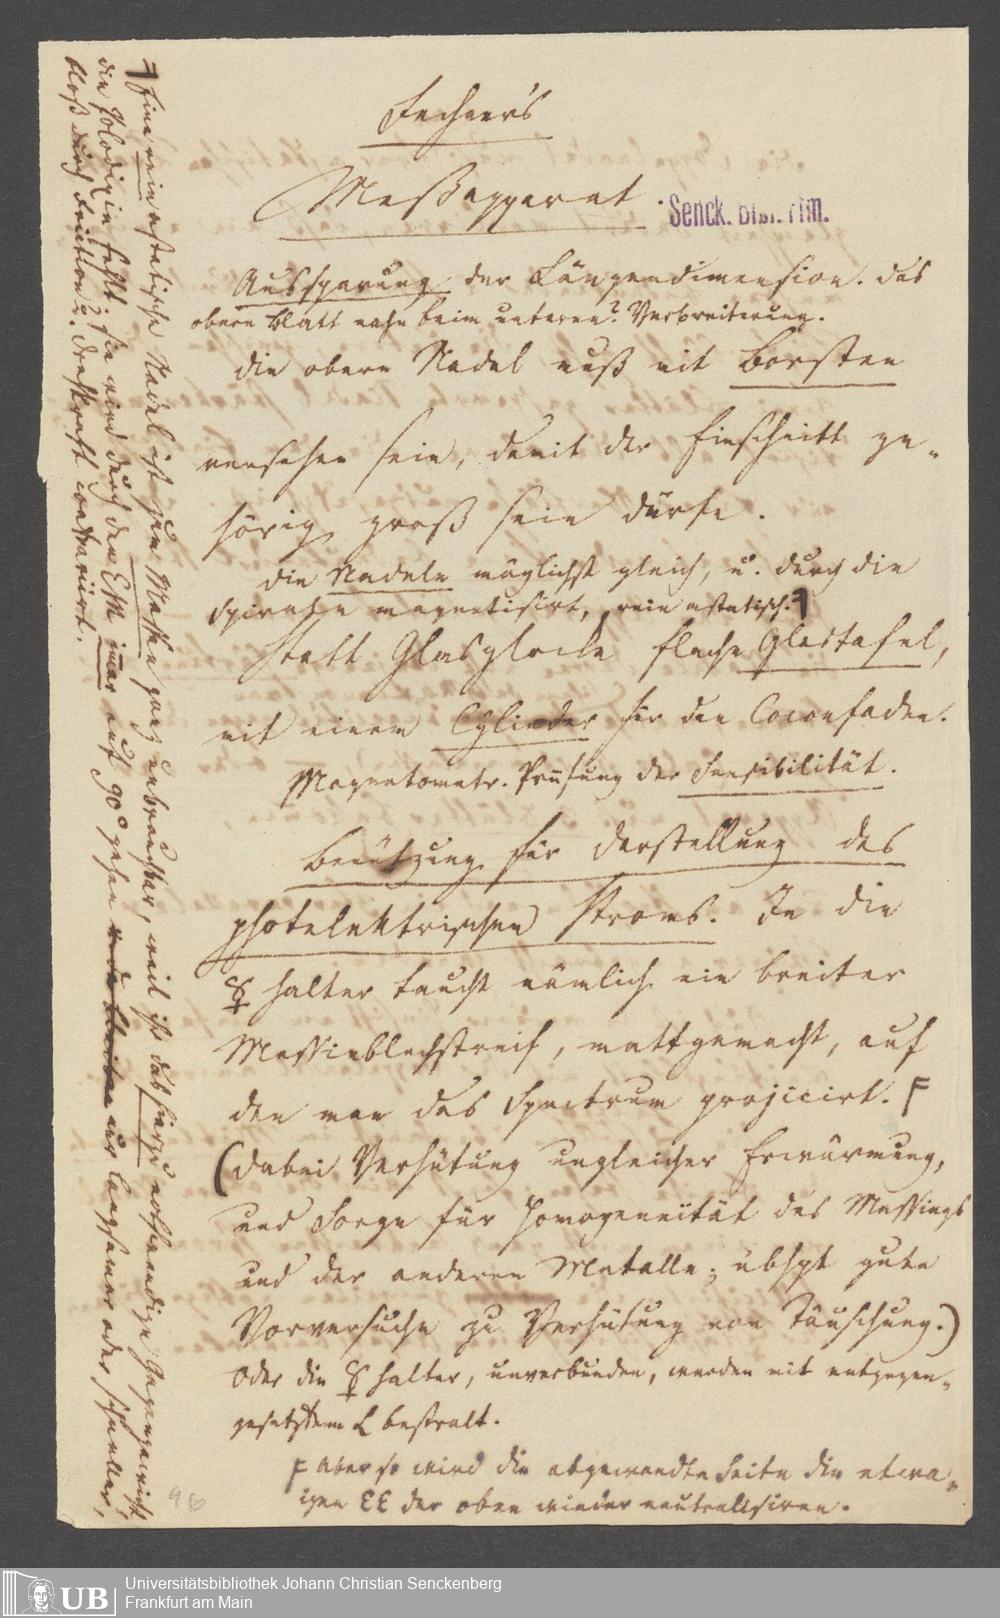 Fechner's
Meßapparat
Senck. Bibl. Ffm.
Aussparung der Längendimension. das
obere Blatt nahe beim unteren? Verbreiterung.
die obere Nadel muß mit Borsten
versehen sein, damit der Einschnitt ge-
hörig groß sein dürfe.
die Nadeln möglichst gleich, u. durch die
Spirale magnetisirt, rein astatisch.
statt Glasglocke flache Glastafel,
mit einem Cylinder für den Coconfaden.
Magnetometr. Prüfung der Sensibilität.
Benützung für Darstellung des
photelektrischen Stroms. In die
☿ halter taucht nämlich ein breiter
Messinblechstreif, mattgemacht, auf
den man das Spectrum projicirt. F
(dabei Verhütung ungleicher Erwärmung,
und Sorge für Homogeneität des Messings
und der anderen Metalle; übhpt gute
Vorversuche zu Verhütung von Täuschung.)
Oder die ☿ halter, unverbunden, werden mit entgegen-
gesetztem L bestralt.
F Aber so wird die abgewandte Seite die etwa-
igen EE der oben wieder neutralisiren.
Eine rein astatische Nadel ist zum Messen ganz unbrauchbar, weil ihr das hierzu nothwendige Gegengewicht,
die Polodixie fehlt. sie wird durch den E Str immer auf 90° gehen nur langsamer oder schneller,
bloß durch Friction u. Drehkraft contrariirt.
96
UB
Universitätsbibliothek Johann Christian Senckenberg
Frankfurt am Main